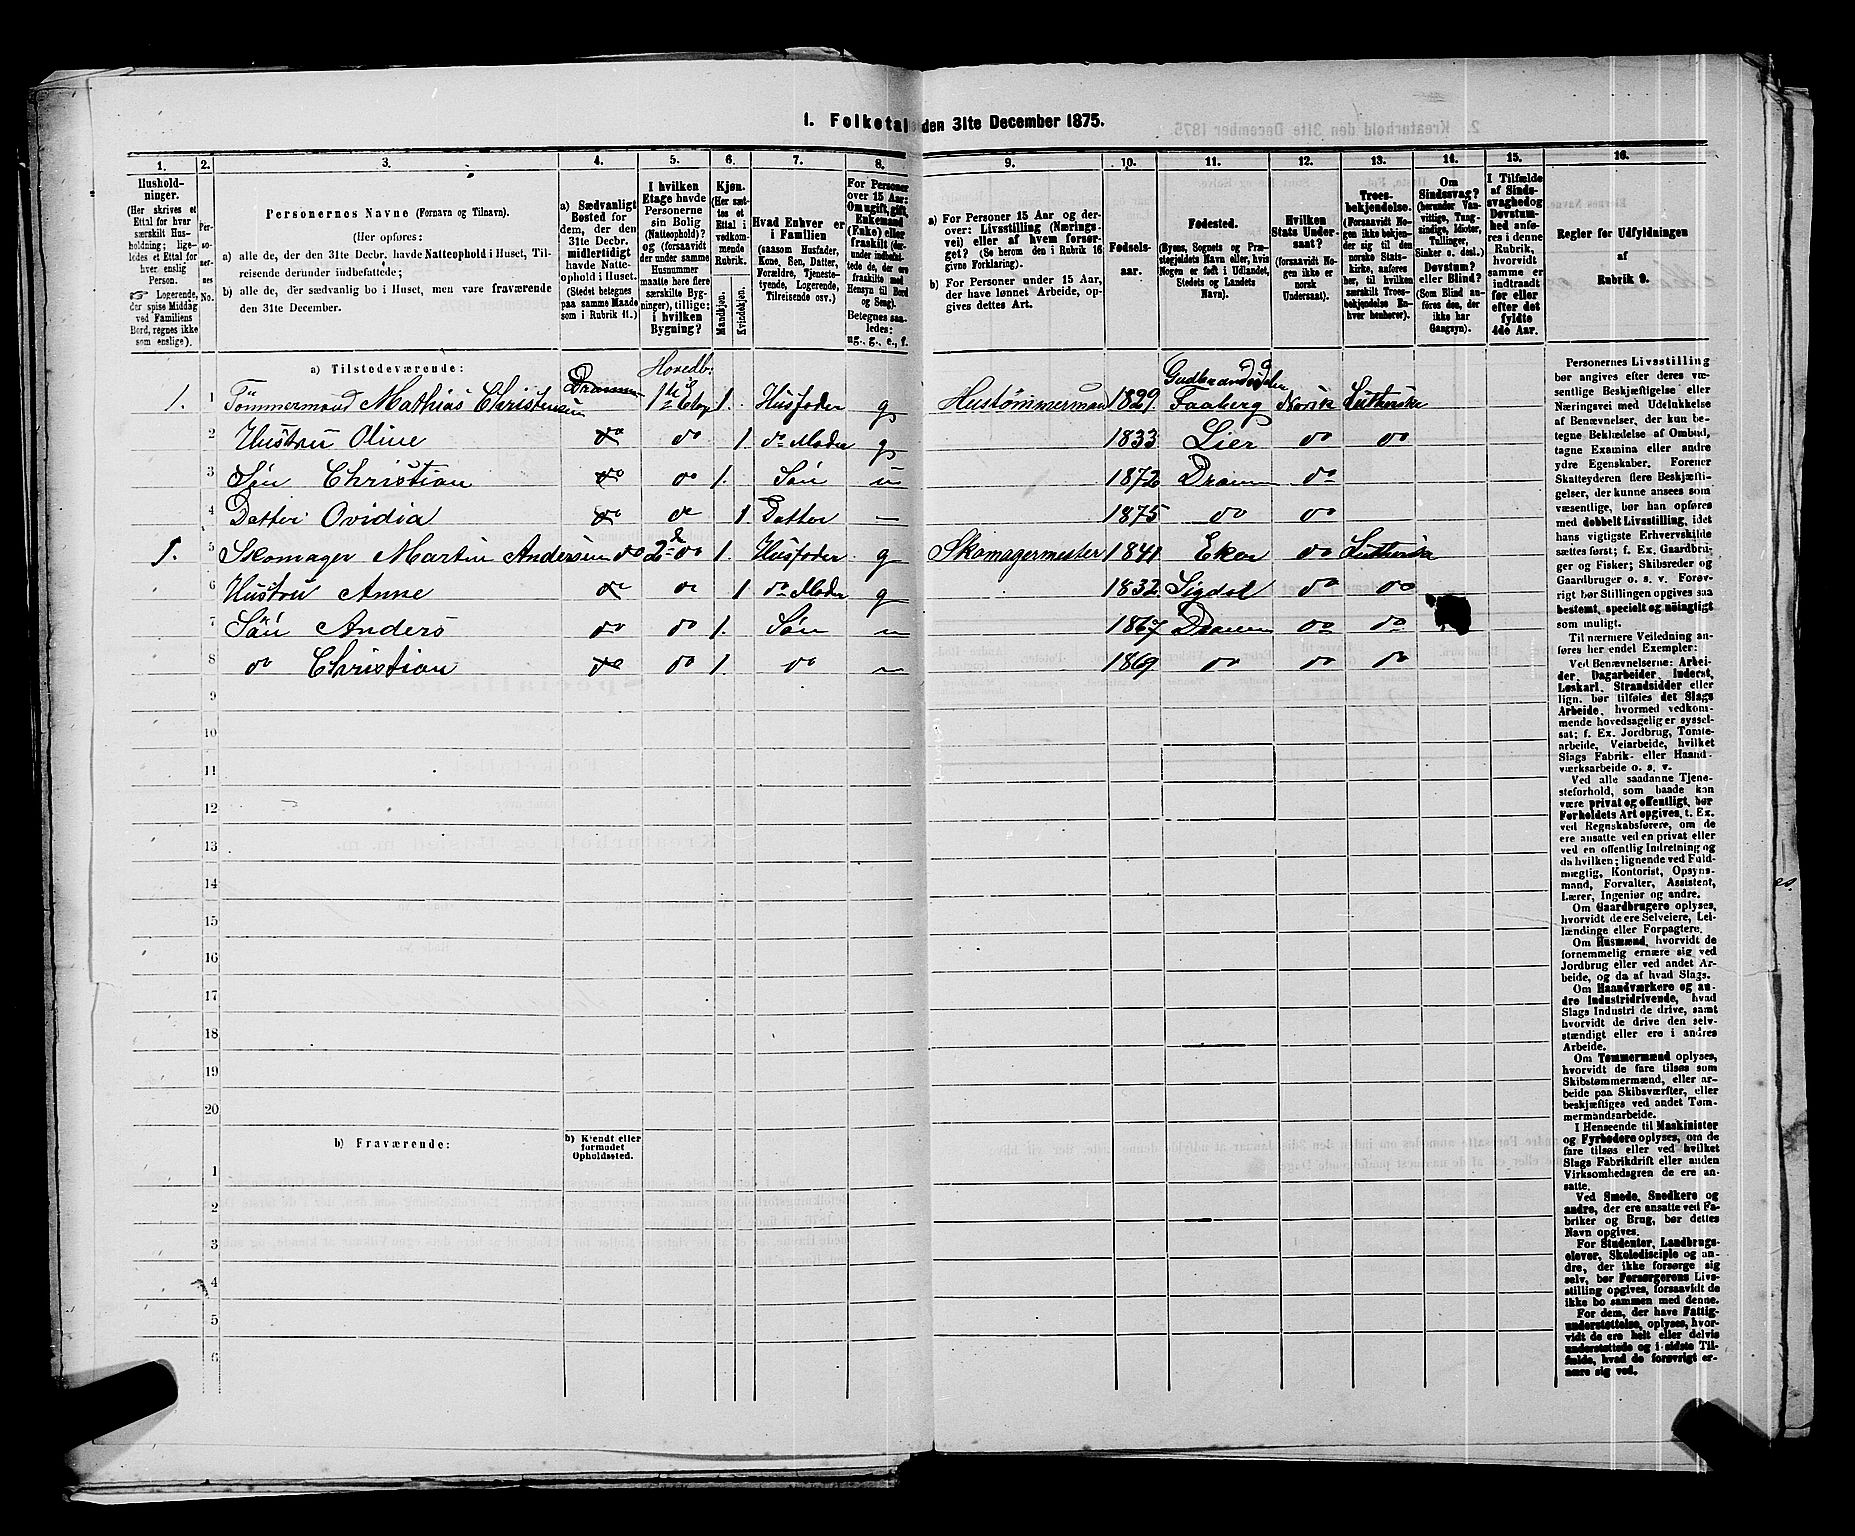 1. Folketal den 31te December 1875.
1. 2. 3. 4. 5. 6. 7. 8. 9. 10. 11. 12. 13. 14. 15. 16.
Hushold-
ninger.
(Her skrives et
Ettal for hver
særskilt Hus-
holdning; lige-
ledes et Ettal for
hver enslig
Person.
☞ Logerende,
der spise Middag
ved Familiens
Bord, regnes ikke
som enslige).
Per-
so-
ner-
nes
No.
Personernes Navne (Fornavn og Tilnavn).
(Her opføres:
a) alle de, der den 31te Decbr. havde Natteophold i Huset, Til-
reisende derunder indbefattede;
b) alle de, der sædvanlig bo i Huset, men vare fraværende
den 31te December.
a) Sædvanligt
Bosted for
dem, der den
31te Decbr.
midlertidigt
havde Natte-
ophold i Huset.
(Stedet betegnes
paa samme Maade
som i Rubrik 11.)
I hvilken
Etage havde
Personerne
sin Bolig
(Natteophold)?
og (forsaavidt
der under samme
Husnummer
maatte høre flere
særskilte Byg-
ninger), tillige:
i hvilken
Bygning?
Kjøn.
(Her sæt-
tes et
Ettal i
vedkom-
mende
Rubrik.
Mandkjøn.
Kvindekjøn.
Hvad Enhver er
i Familien
(saasom Husfader,
Kone, Søn, Datter,
Forældre, Tjeneste-
tyende, Logerende,
Tilreisende osv.)
For Personer
over 15 Aar:
Om ugift, gift,
Enkemand
(Enke) eller
fraskilt (der-
under indbefat-
tede de, der ere
fraskilte med
Hensyn til Bord
og Seng).
Betegnes saa-
ledes:
ug., g., e., f.
a) For Personer 15 Aar og der-
over: Livsstilling (Nærings-
vei) eller af hvem forsør-
get? (Se herom den i Rubrik 16
givne Forklaring).
b) For Personer under 15 Aar,
der have lønnet Arbeide, op-
gives dettes Art.
Fødsels-
aar.
Fødested.
(Byens, Sognets og Præ-
stegjeldets Navn eller, hvis
Nogen er født i Udlandet,
Stedets og Landets
Navn).
Hvilken
Stats Under-
saat?
(forsaavidt No-
gen ikke er
norsk
Undersaat).
Troes-
bekjendelse.
(Forsaavidt No-
gen ikke bekjen-
der sig til den
norske Stats-
kirke, anføres
her, til hvilken
særskilt Troes-
bekjendelse En-
hver henhører).
Om
Sindssvag?
(herunder Van-
vittige, Tung-
sindige, Idioter,
Tullinger,
Sinker o. desl.)
Døvstum?
eller Blind?
(Som Blind an-
føres den, der
ikke har
Gangsyn).
I Tilfælde
af Sinds-
svaghed og
Døvstum-
hed anfø-
res i denne
Rubrik,
hvorvidt
samme er
indtraadt
før eller
efter det
fyldte
4de Aar.
Regler for Udfyldningen
af
Rubrik 9.
a) Tilstedeværende: Hovedb: Gudbrandsdalen
1. 1 Tömmermand Mathias Christensen Drammen 1te Etag 1. Husfader g Hustömmermand 1829. Faaberg Norsk Lutherske
2 Hustru Oline do do 1. do Moder g 1833 Lier do do
3 Søn Christian do do 1. Søn u 1872 Dramm do
4 Datter Ovidia do do 1 Datter — 1875 do do
1. 5 Skomager Martin Andersen do 2d do 1. Husfader g Skomagermester 1841 Eker do Lutherske
6 Hustru Anne do do 1 do Moder g 1832 Sigdal do do
7 Søn Anders do do 1. Søn 1867 Dramm do do
8 do Christian do do 1. do 1869 do do do
9
10
11
12
13
14
15
16
17
18
19
20
b) Fraværende: b) Kjendt eller
formodet
Opholdssted.
1
2
3
4
5
6
Personernes Livsstilling
bør angives efter deres væ-
sentlige Beskjæftigelse eller
Næringsvei med Udelukkelse
af Benævnelser, der kun be-
tegne Beklædelse af Ombud,
tagne Examina eller andre
ydre Egenskaber. Forener
Skatteyderen flere Beskjæfti-
gelser, der kunne ansees som
væsentlige, bør han opføres
med dobbelt Livsstilling, idet
hans vigtigste Erhvervskilde
sættes først; f. Ex. Gaardbru-
ger og Fisker; Skibsreder og
Gaardbruger o. s. v. Forøv-
rigt bør Stillingen opgives saa
bestemt, specielt og nøiagtigt
som muligt.
Til nærmere Veiledning an-
føres her endel Exempler:
Ved Benævnelserne: Arbei-
der, Dagarbeider, Inderst,
Løskarl, Strandsidder eller
lign. bør tilføies det Slags
Arbeide, hvormed vedkom-
mende hovedsagelig er syssel-
sat; f. Ex. Jordbrug, Tomte-
arbeide, Veiarbeide, hvilket
Slags Fabrik- eller Haand-
værksarbeide o. s. v.
Ved alle saadanne Tjene-
steforhold, som baade kan
være privat og offentligt, bør
Forholdets Art opgives, t. Ex.
ved Regnskabsførere, om de
ere ansatte ved en privat eller
ved en offentlig Indretning og
da hvilken; lignende ved Fuld-
mægtig, Kontorist, Opsyns-
mand, Forvalter, Assistent,
Lærer, Ingeniør og andre.
Om Gaardbrugere oplyses,
hvorvidt de ere Selveiere, Lei-
lændinge eller Forpagtere.
Om Husmænd, hvorvidt de
fornemmelig ernære sig ved
Jordbrug eller ved andet Ar-
beide, og da af hvad Slags.
Om Haandværkere og an-
dre Industridrivende, hvad
Slags Industri de drive, samt
hvorvidt de drive den selv-
stændigt eller ere i andres
Arbeide.
Om Tømmermænd oplyses,
hvorvidt de fare tilsøs som
Skibstømmermænd, eller ar-
beide paa Skibsværfter, eller
beskjæftiges ved andet Tøm-
mermandsarbeide.
I Henseende til Maskinister
og Fyrbødere oplyses, om de
fare tilsøs eller ved hvilket
Slags Fabrikdrift eller anden
Virksomhedsgren de ere an-
satte.
Ved Smede, Snedkere og
andre, der ere ansatte ved Fa-
briker og Brug, bør dettes
Navn opgives.
For Studenter, Landbrugs-
elever, Skoledisciple og an-
dre, der ikke forsørge sig
selv, bør Forsørgerens Livs-
stilling opgives, forsaavidt de
ikke bo sammen med denne.
For dem, der have Fattig-
understøttelse, oplyses, hvor-
vidt de ere helt eller delvis
understøttede og i sidste Til-
fælde, hvad de forøvrigt er-
nære sig ved.